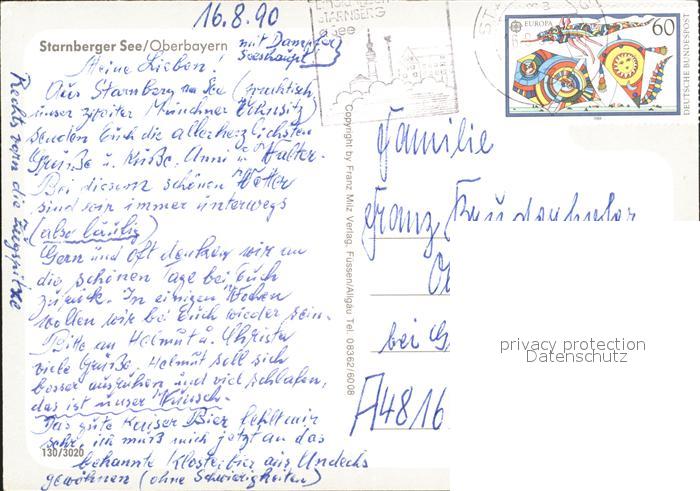 16.8.90
Starnberger See/Oberbayern
mit Dampfer
Seeshaupt
Meine Lieben!
Aus Starnberg am See (praktisch
unser zweiter Münchner Wohnsitz)
senden Euch die allerherzlichsten
Grüße u. Küße. Anni u. Walter.
Bei diesem schönen Wetter
sind wir immer unterwegs
(also läufig)
Gern und oft denken wir an
die schönen Tage bei Euch
zurück. In einigen Wochen
wollen wir bei Euch wieder sein.
Bitte an Helmut u. Christa
viele Grüße. Helmut soll sich
besser ausruhen und viel schlafen,
das ist unser Wunsch.
Das gute Kaiser Bier fehlt mir
sehr, ich muß mich jetzt an das
bekannte Klosterbier aus Andechs
gewöhnen (ohne Schwierigkeiten)
130/3020
Rechts vorn die Zugspitze
Copyright by Franz Milz Verlag, Füssen/Allgäu Tel. 08362/6008
STARNBERG
See
EUROPA
60
DEUTSCHE BUNDESPOST
Familie
Franz
bei G
A4816
privacy protection
Datenschutz